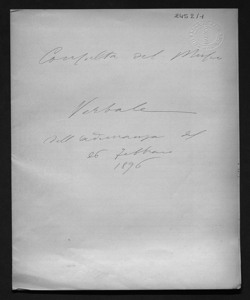 2452/1
Consulta del Museo
Verbale
dell'adunanza del
26 Febbraio
1896